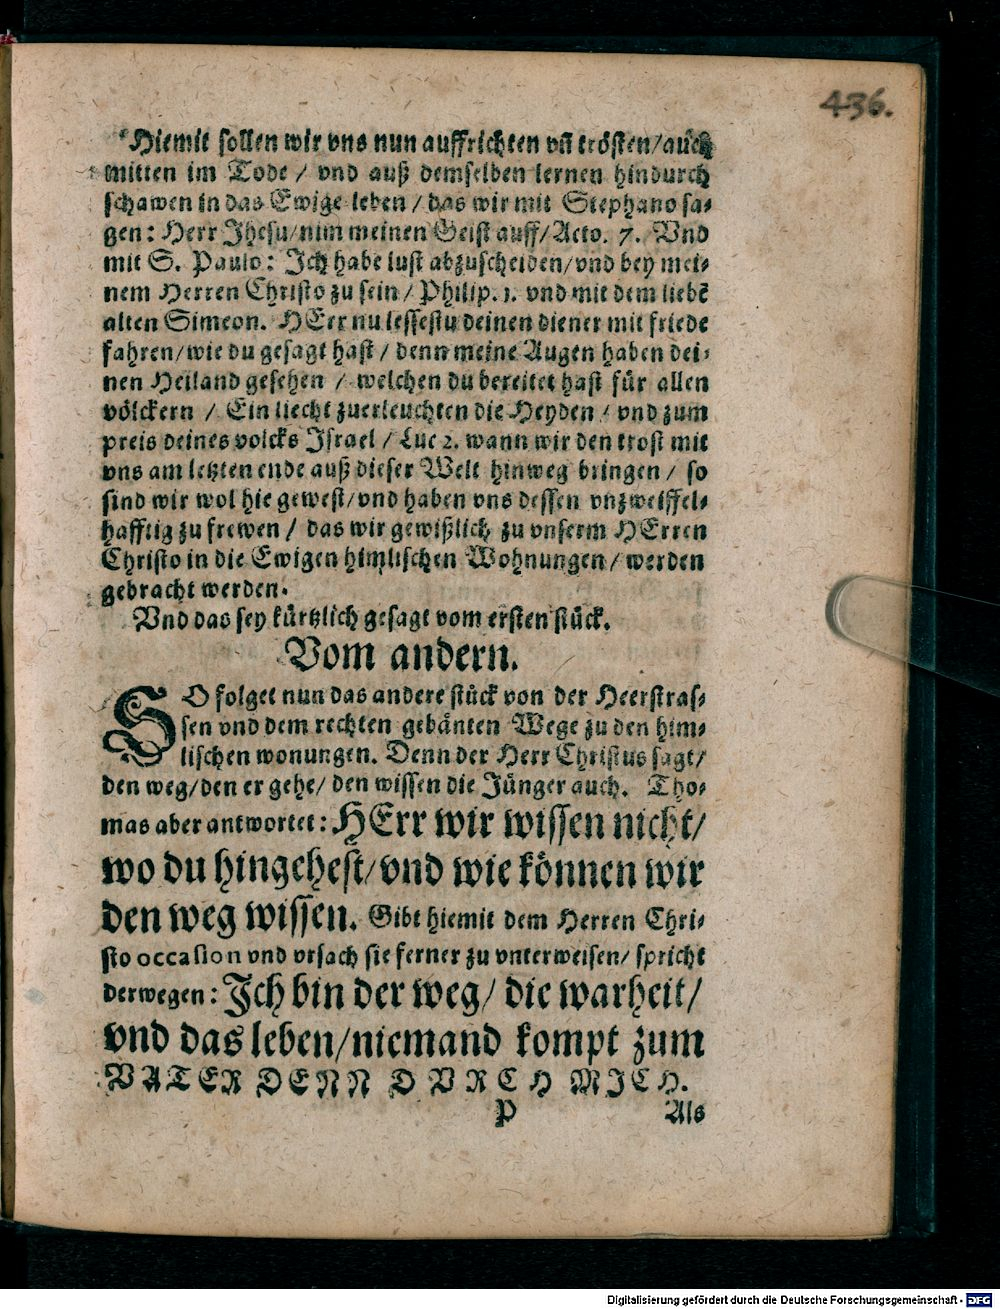 436.
Hiemit sollen wir vns nun auffrichten vñ trösten/auch
mitten im Tode / vnd auß demselben lernen hindurch
schawen in das Ewige leben / das wir mit Stephano sa-
gen: Herr Jhesu/nim meinen Geist auff/Acto. 7. Vnd
mit S. Paulo: Ich habe lust abzuscheiden/vnd bey mei-
nem Herren Christo zu sein / Philip. 1. vnd mit dem liebẽ
alten Simeon. HErr nu lessestu deinen diener mit friede
fahren/wie du gesagt hast / denn meine Augen haben dei-
nen Heiland gesehen / welchen du bereitet hast für allen
völckern / Ein liecht zuerleuchten die Heyden / vnd zum
preis deines volcks Israel / Luc 2. wann wir den trost mit
vns am letzten ende auß dieser Welt hinweg bringen / so
sind wir wol hie gewest/vnd haben vns dessen vnzweiffel-
hafftig zu frewen / das wir gewißlich zu vnserm HErren
Christo in die Ewigen himlischen Wohnungen / werden
gebracht werden.
Vnd das sey kürtzlich gesagt vom ersten stück.
Vom andern.
SO folget nun das andere stück von der Heerstras-
sen vnd dem rechten gebänten Wege zu den him-
lischen wonungen. Denn der Herr Christus sagt/
den weg/den er gehe/ den wissen die Jünger auch. Tho-
mas aber antwortet: HErr wir wissen nicht/
wo du hingehest/vnd wie können wir
den weg wissen. Gibt hiemit dem Herren Chri-
sto occasion vnd vrsach sie ferner zu vnterweisen/ spricht
derwegen: Ich bin der weg/ die warheit/
vnd das leben/niemand kompt zum
VATER DENN DVRCH MICH.
P Als
Digitalisierung gefördert durch die Deutsche Forschungsgemeinschaft - DFG